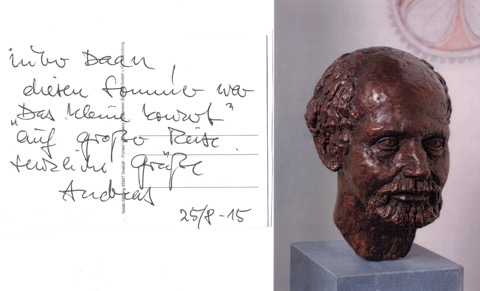 Lieber Daan,
diesen Sommer war
„Das kleine Konzert"
auf großer Reise.
Herzliche Grüße
Andreas
25/8-15